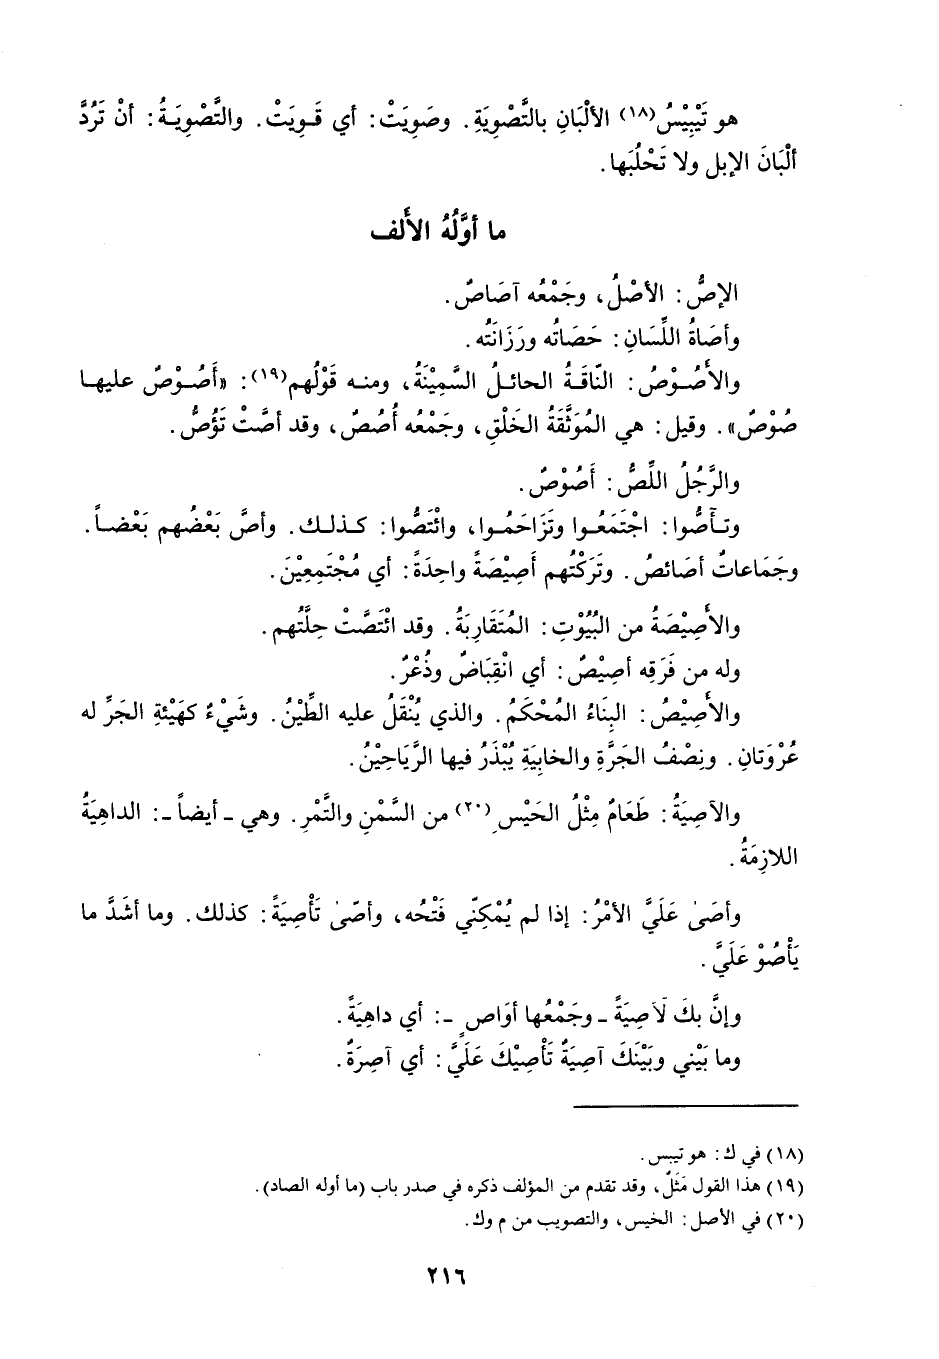 هو تَيْبِيْسُ(١٨) الألْبَانِ بالتَّصْوِيَةِ. وصَوِيَتْ: أي قَوِيَتْ. والتَّصْوِيَةُ: أنْ تَرُدَّ
ألْبَانَ الإبل ولا تَحْلُبَها.
ما أوَّلُهُ الأَلف
الإصُّ: الأصْلُ، وجَمْعُه آصَاصٌ.
وأصَاةُ اللِّسَانِ: حَصَاتُه ورَزَانَتُه.
والأصُوْصُ: النّاقَةُ الحائلُ السَّمِيْنَةُ، ومنه قَوْلُهم(١٩): «أَصُوْصٌ عليها
صُوْصٌ». وقيل: هي المُوَثَّقَةُ الخَلْقِ، وجَمْعُه أُصُصٌ، وقد أصَّتْ تَؤُصُّ.
والرَّجُلُ اللِّصُّ: أَصُوْصٌ.
وتَأَصُّوا: اجْتَمَعُوا وتَزَاحَمُوا، وائْتَصُّوا: كذلك. وأصَّ بَعْضُهم بَعْضاً.
وجَمَاعاتٌ أصَائصُ. وتَرَكْتُهم أَصِيْصَةً واحِدَةً: أي مُجْتَمِعِيْنَ.
والأَصِيْصَةُ من البُيُوْتِ: المُتَقَارِبَةُ. وقد ائْتَصَّتْ حِلَّتُهم.
وله من فَرَقِه أصِيْصٌ: أي انْقِبَاضٌ وذُعْرٌ.
والأَصِيْصُ: البِنَاءُ المُحْكَمُ. والذي يُنْقَلُ عليه الطِّيْنُ. وشَيْءٌ كهَيْئةِ الجَرِّ له
عُرْوَتانِ. ونِصْفُ الجَرَّةِ والخابِيَةِ يُبْذَرُ فيها الرَّيَاحِيْنُ.
والآصِيَةُ: طَعَامٌ مِثْلُ الحَيْسِ(٢٠) من السَّمْنِ والتَّمْرِ. وهي ـ أيضاً ـ: الداهِيَةُ
اللازِمَةُ.
وأصَىٰ عَلَيَّ الأمْرُ: إذا لم يُمْكِنّي فَتْحُه، وأصّىٰ تَأْصِيَةً: كذلك. وما أشَدَّ ما
يَأْصُوْ عَلَيَّ.
وإنَّ بكَ لَآصِيَةً ـ وجَمْعُها أوَاصٍ ـ: أي داهِيَةً.
وما بَيْني وبَيْنَكَ آصِيَةٌ تَأْصِيْكَ عَلَيَّ: أي آصِرَةٌ.
(١٨) في ك: هو تيبس.
(١٩) هذا القول مَثَلٌ، وقد تقدم من المؤلف ذكره في صدر باب (ما أوله الصاد).
(٢٠) في الأصل: الخيس، والتصويب من م وك.
٢١٦